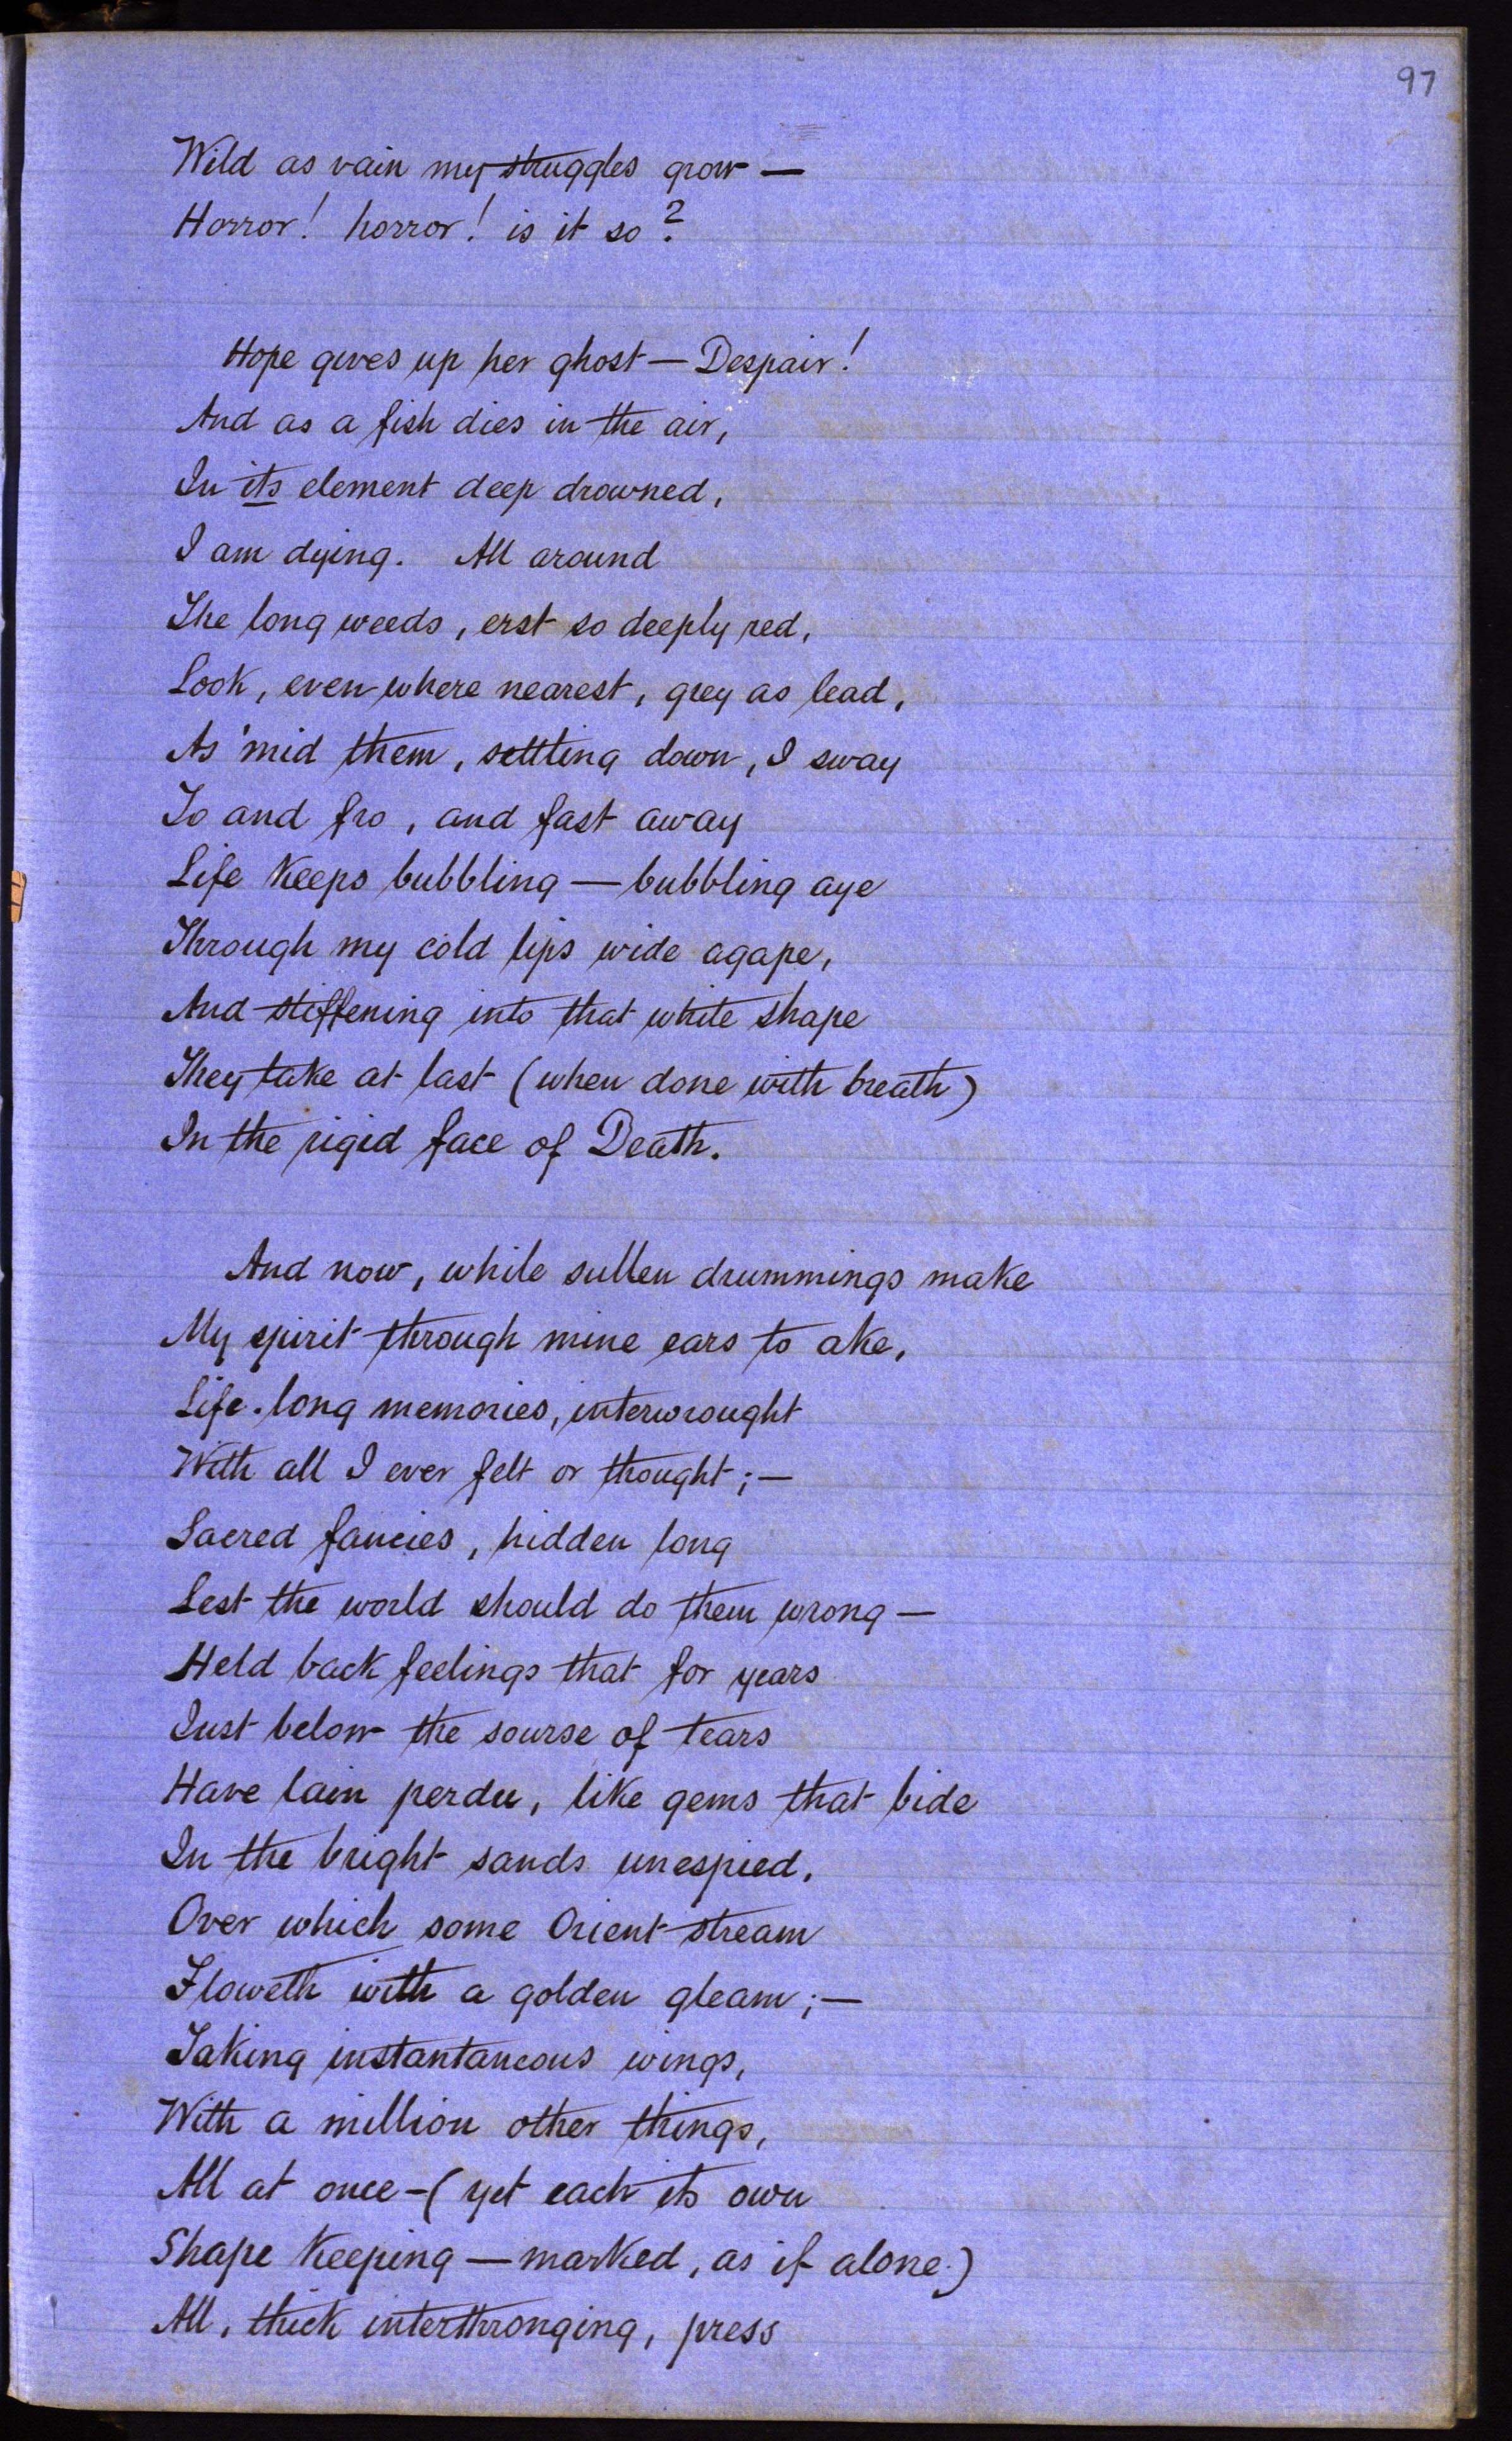 97
Wild as vain my struggles grow —
Horror! horror! is it so?
Hope gives up her ghost — Despair!
And as a fish dies in the air,
In its element deep drowned,
I am dying. All around
The long weeds, erst so deeply red,
Look, even where nearest, grey as lead,
As 'mid them, settling down, I sway
To and fro, and fast away
Life keeps bubbling — bubbling aye
Through my cold lips wide agape,
And stiffening into that white shape
They take at last (when done with breath)
In the rigid face of Death.
And now, while sullen drummings make
My spirit through mine ears to ake,
Life-long memories, interwrought
With all I ever felt or thought; —
Sacred fancies, hidden long
Lest the world should do them wrong —
Held back feelings that for years
Just below the sourse of tears
Have lain perdu, like gems that bide
In the bright sands unespied,
Over which some Orient stream
Floweth with a golden gleam; —
Taking instantaneous wings,
With a million other things,
All at once — (yet each its own
Shape keeping — marked, as if alone.)
All, thick interthronging, press